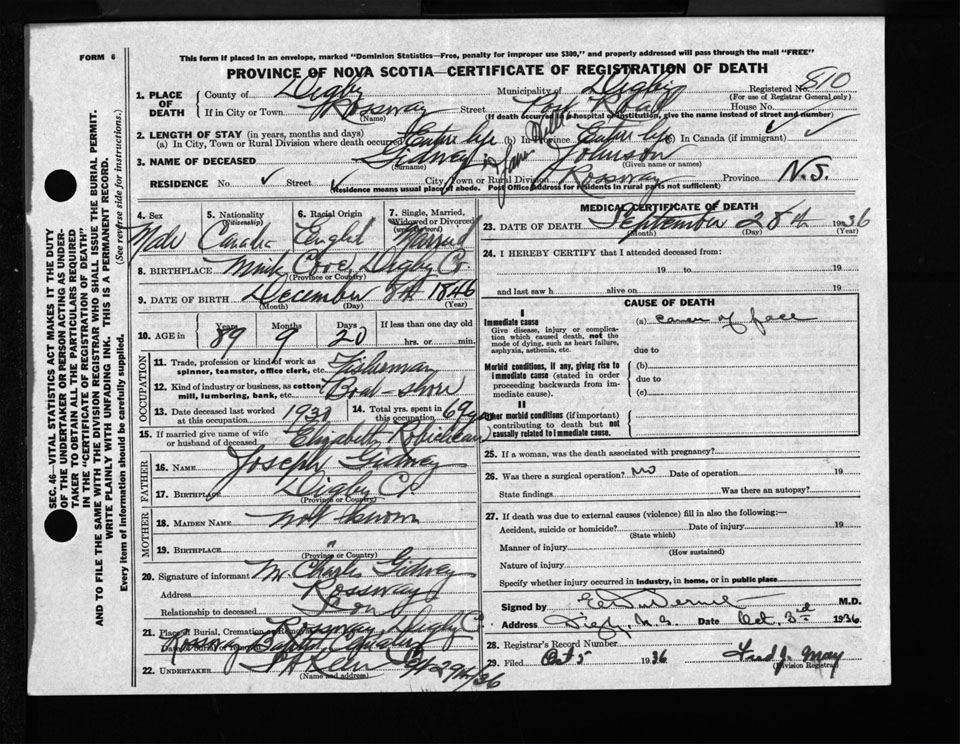 FORM 6
This form if placed in an envelope, marked "Dominion Statistics—Free, penalty for improper use $300," and properly addressed will pass through the mail "FREE"
PROVINCE OF NOVA SCOTIA—CERTIFICATE OF REGISTRATION OF DEATH
1. PLACE OF DEATH County of Digby Municipality of Digby Registered No. 810
(For use of Registrar General only)
If in City or Town Rossway Street Post Road House No.
(Name) (If death occurred in a hospital or institution, give the name instead of street and number)
2. LENGTH OF STAY (in years, months and days)
(a) In City, Town or Rural Division where death occurred Entire life (b) In Province Entire life (c) In Canada (if immigrant) ✓
3. NAME OF DECEASED Gidney Johnson
(Surname) (Given name or names)
RESIDENCE No. ✓ Street ✓ City, Town or Rural Division Rossway Province N.S.
(Residence means usual place of abode. Post Office Address for residents in rural parts not sufficient)
4. Sex 5. Nationality (Citizenship) 6. Racial Origin 7. Single, Married, Widowed or Divorced (write the word)
Male Canada English Married
8. BIRTHPLACE Mink Cove, Digby Co.
(Province or Country)
9. DATE OF BIRTH December 8th 1846
(Month) (Day) (Year)
10. AGE in Years Months Days If less than one day old
89 9 20 hrs. or min.
OCCUPATION
11. Trade, profession or kind of work as spinner, teamster, office clerk, etc. Fisherman
12. Kind of industry or business, as cotton mill, lumbering, bank, etc. Boat-shore
13. Date deceased last worked at this occupation 14. Total yrs. spent in this occupation
15. If married give name of wife or husband of deceased Elizabeth
FATHER
16. NAME Joseph Gidney
17. BIRTHPLACE Digby Co.
(Province or Country)
MOTHER
18. MAIDEN NAME not known
19. BIRTHPLACE "
(Province or Country)
20. Signature of informant Mr. Charles Gidney
Address Rossway
Relationship to deceased Son
21. Place of Burial, Cremation or Removal Rossway, Digby Co.
Date of Burial or Removal
Rossway Baptist
22. UNDERTAKER
(Name and address)
MEDICAL CERTIFICATE OF DEATH
23. DATE OF DEATH September 28th 1936
(Month) (Day) (Year)
24. I HEREBY CERTIFY that I attended deceased from:
19 to 19
and last saw h alive on 19
CAUSE OF DEATH
I
Immediate cause (a) cancer of face
Give disease, injury or complication which caused death, not the mode of dying, such as heart failure, asphyxia, asthenia, etc.
due to
Morbid conditions, if any, giving rise to immediate cause (stated in order proceeding backwards from immediate cause). (b)
due to
(c)
II
Other morbid conditions (if important) contributing to death but not causally related to immediate cause.
25. If a woman, was the death associated with pregnancy?
26. Was there a surgical operation? No Date of operation 19
State findings Was there an autopsy?
27. If death was due to external causes (violence) fill in also the following:—
Accident, suicide or homicide? Date of injury 19
(State which)
Manner of injury
(How sustained)
Nature of injury
Specify whether injury occurred in industry, in home, or in public place
Signed by M.D.
Address Digby, N.S. Date Oct. 3rd 1936
28. Registrar's Record Number
29. Filed Oct 5 1936 Fred J. May
(Division Registrar)
SEC. 46—VITAL STATISTICS ACT MAKES IT THE DUTY
OF THE UNDERTAKER OR PERSON ACTING AS UNDER-
TAKER TO OBTAIN ALL THE PARTICULARS REQUIRED
IN THE "CERTIFICATE OF REGISTRATION OF DEATH"
AND TO FILE THE SAME WITH THE DIVISION REGISTRAR WHO SHALL ISSUE THE BURIAL PERMIT.
WRITE PLAINLY WITH UNFADING INK. THIS IS A PERMANENT RECORD.
Every item of information should be carefully supplied. (See reverse side for instructions.)